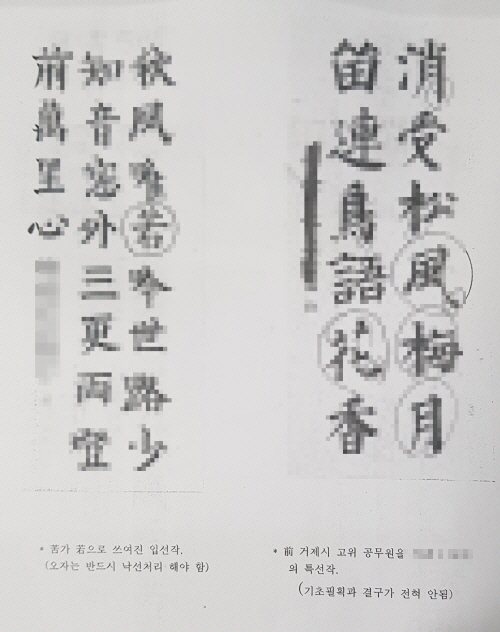 秋風唯若吟世路少
知音窓外三更雨
前萬里心
* 苦가 若으로 쓰여진 입선작.
(오자는 반드시 낙선처리 해야 함)
消受松風梅月
連鳥語花香
* 前 거제시 고위 공무원을
의 특선작.
(기초필획과 결구가 전혀 안됨)